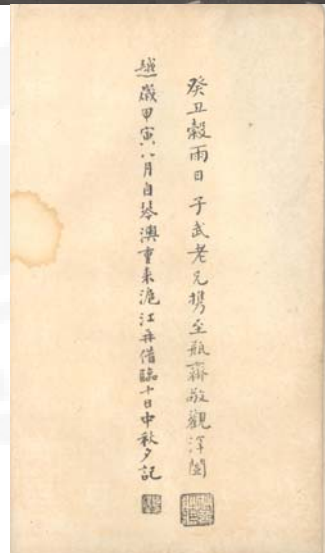 癸丑穀雨日子武老兄携至瓶齋敬觀澤闓
越歲甲寅八月自琴澳重來滬江再借臨十日中秋夕記